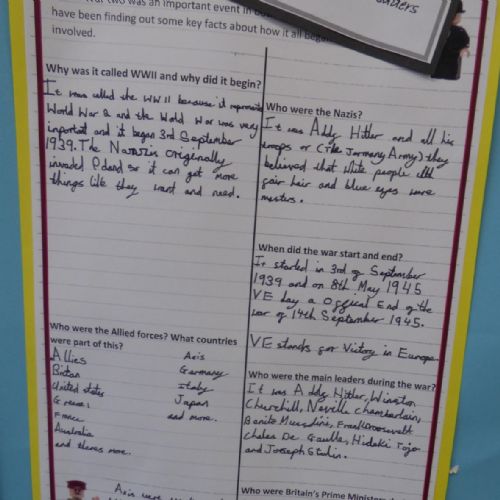 war two was an important event in
have been finding out some key facts about how it all
involved.
Why was it called WWII and why did it begin?
It was called the WWII because it represents
World War 2 and the World War was very
important and it began 3rd September
1939. The Nazis originally
invaded Poland so it can get more
things like they want and need.
Who were the Nazis?
It was Addy Hitler and all his
troops or (the Jermany Army) they
believed that white people with
fair hair and blue eyes were
masters.
When did the war start and end?
It started in 3rd of September
1939 and on 8th May 1945
VE day a Offical End of the
war of 14th September 1945.
VE stands for Victory in Europe.
Who were the Allied forces? What countries
were part of this?
Allies
Britan
United states
France
Australia
and theres more.
Axis
Germany
Italy
Japan
and more.
Who were the main leaders during the war?
It was Addy Hitler, Winston
Churchill, Neville Chamberlain,
Benito Mussolini, Frank Roosevelt
Charles De Gaulle, Hideki Tojo
and Joseph Stalin.
Axis were
Who were Britain's Prime